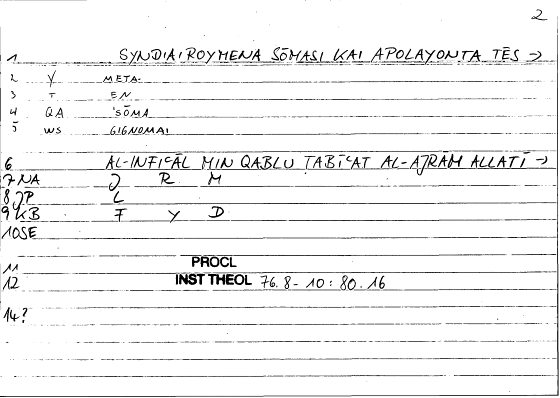 2
1 SYNDIAIROYMENA SŌMASI KAI APOLAYONTA TĒS →
2 Y META-
3 T EN
4 QA 'SŌMA
5 WS GIGNOMAI
6 AL-INFIʿĀL MIN QABLU TABĪʿAT AL-AJRĀM ALLATĪ →
7 NA J R M
8 JP L
9 KB F Y D
10 SE
11 PROCL
12 INST THEOL 76.8-10:80.16
14?